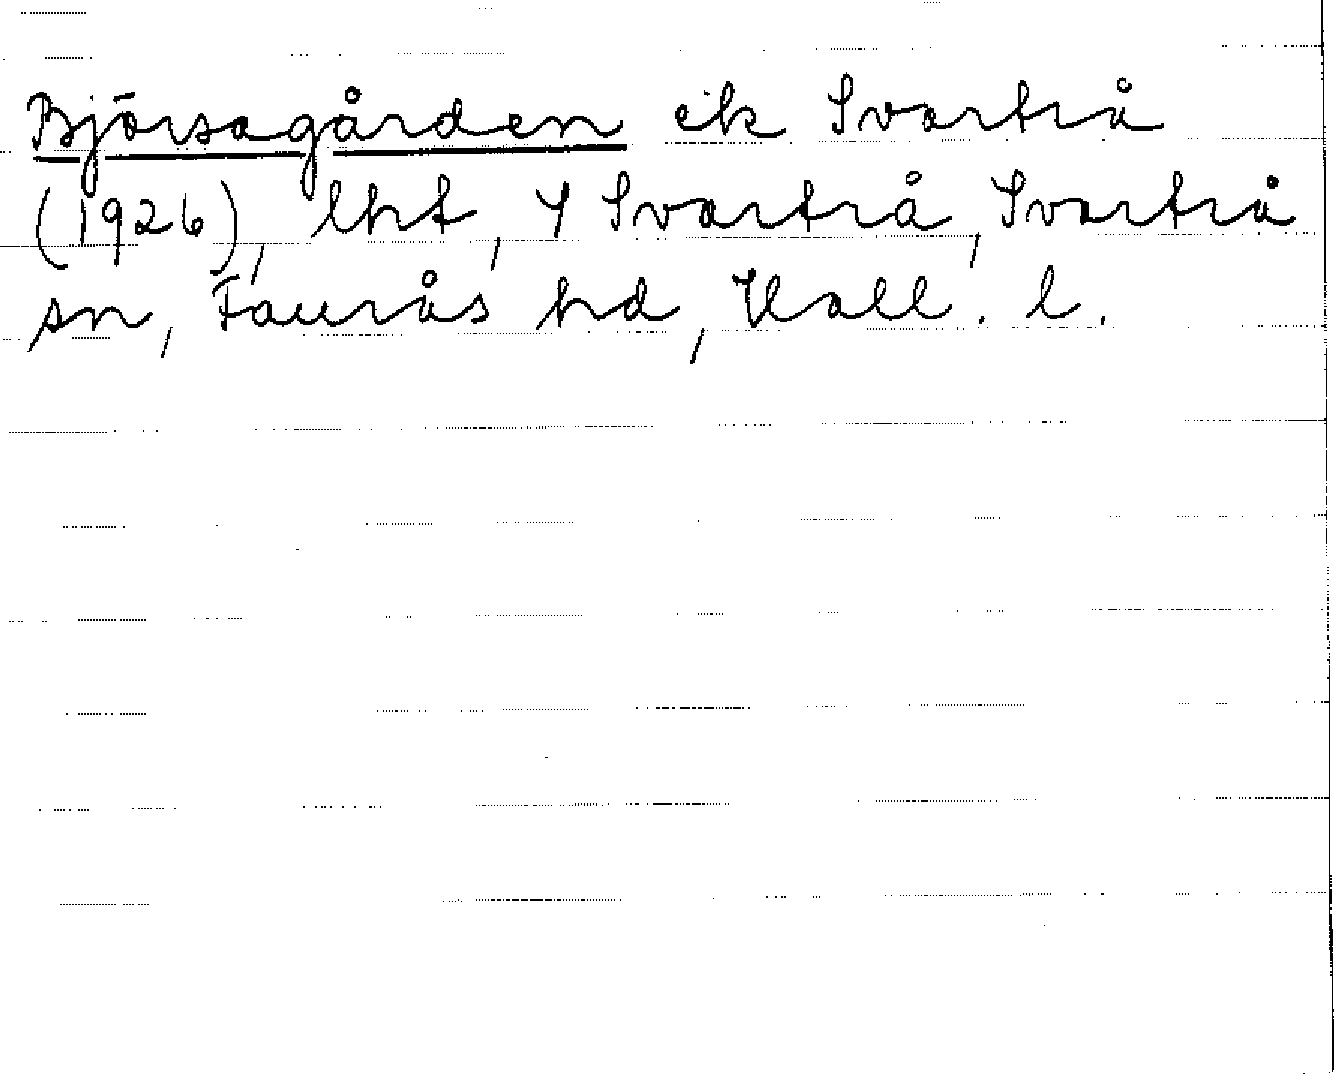 Björsagården eik Svartrå
(1926), lht, 4 Svartrå, Svartrå
sn, Faurås hd, Hall. l.